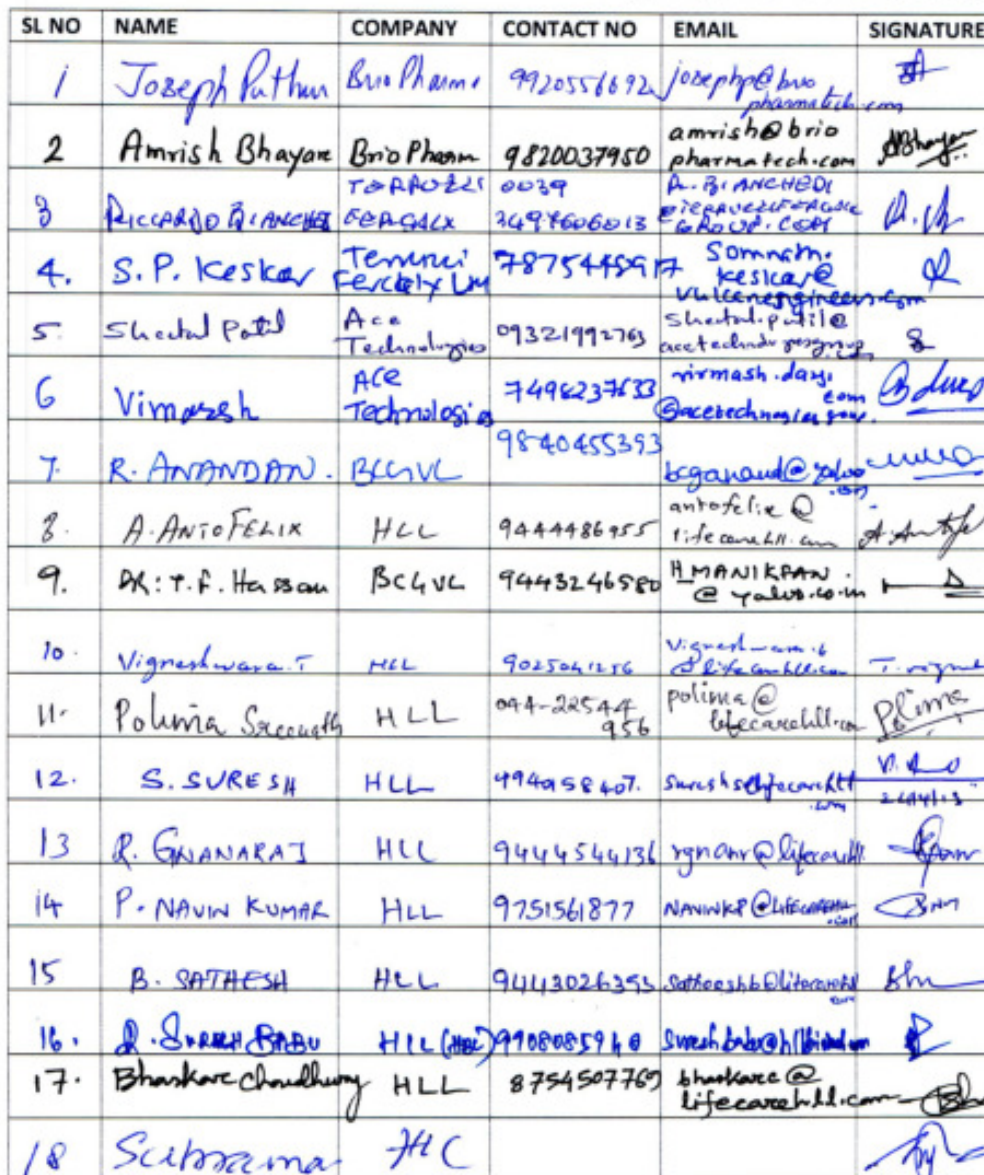 SL NO NAME COMPANY CONTACT NO EMAIL SIGNATURE
1 Joseph Puthur Brio Pharma 9920556692 josephp@brio
pharmatech.com
2 Amrish Bhayare Brio Pharm 9820037950 amrish@brio
pharmatech.com
3 RICCARDO 0039
3497606013
GROUP.COM
4. S.P. Keskar 7875445917 Somnath.
keskar@
vulcanengineers.com
5. Sheetal Patil Ace
Technologies 09321992763 Sheetal.patil@
6 Vimarsh ACE
Technologies 7498237633
7. R. ANANDAN. BCGVL 9840455393 bcganand@yahoo
.com
8. A. ANTO FELIX HLL 9444486955 antofelix@
lifecarehll.com
9. DR: T.F. Hassan BCGVL 9443246580 H_MANIKFAN.
@yahoo.co.in
10. Vigneshwara.T HLL 9025041256
@lifecarehll.com T. vigne
11. Polima Sreenath HLL 044-22544
956 polima@
lifecarehll.com Polima
12. S. SURESH HLL 994958407. sureshs@lifecarehll
.com
13 R. GNANARAJ HLL 9444544136
14 P. NAVIN KUMAR HLL 9751561877 NAVINKP@LIFECAREHLL
.com
15 B. SATHESH HLL 9443026393 satheeshb@lifecarehll
.com
16. R. SURESH BABU HLL (HBL) 9908085940
17. Bhaskare Choudhury HLL 8754507769 bhaskarc@
lifecarehll.com
18